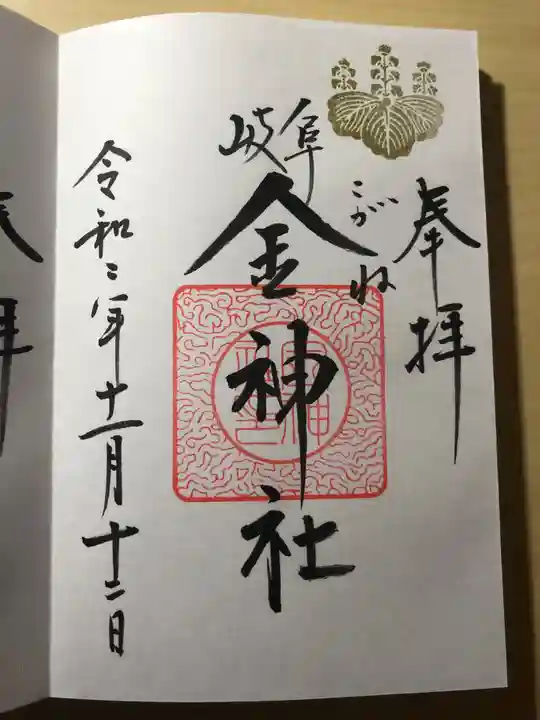 奉拝
岐阜
こがね
金神社
令和二年十一月十二日